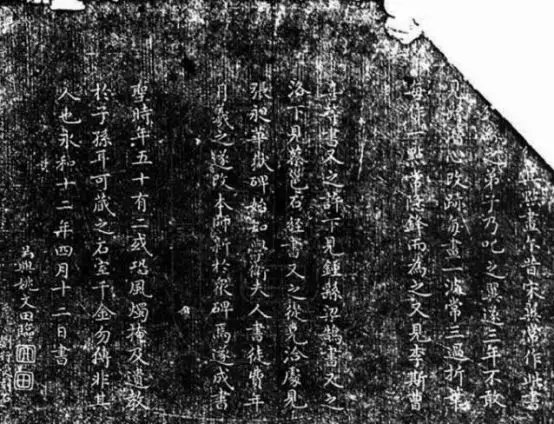 點畫耳昔宋翼常作此書
之弟子乃叱之翼遂三年不敢
見潛心改跡每畫一波常三過折筆
每作一點常隱鋒而為之又見李斯曹
喜等書又之許下見鍾繇梁鵠書又之
洛下見蔡邕石經書又之從兄洽處見
張昶華嶽碑始知學衛夫人書徒費年
月羲之遂改本師新於眾碑焉遂成書
聖時年五十有二或恐風燭掩及遺教
於子孫耳可藏之石室千金勿傳非其
人也永和十二年四月十二日書
吳興姚文田臨